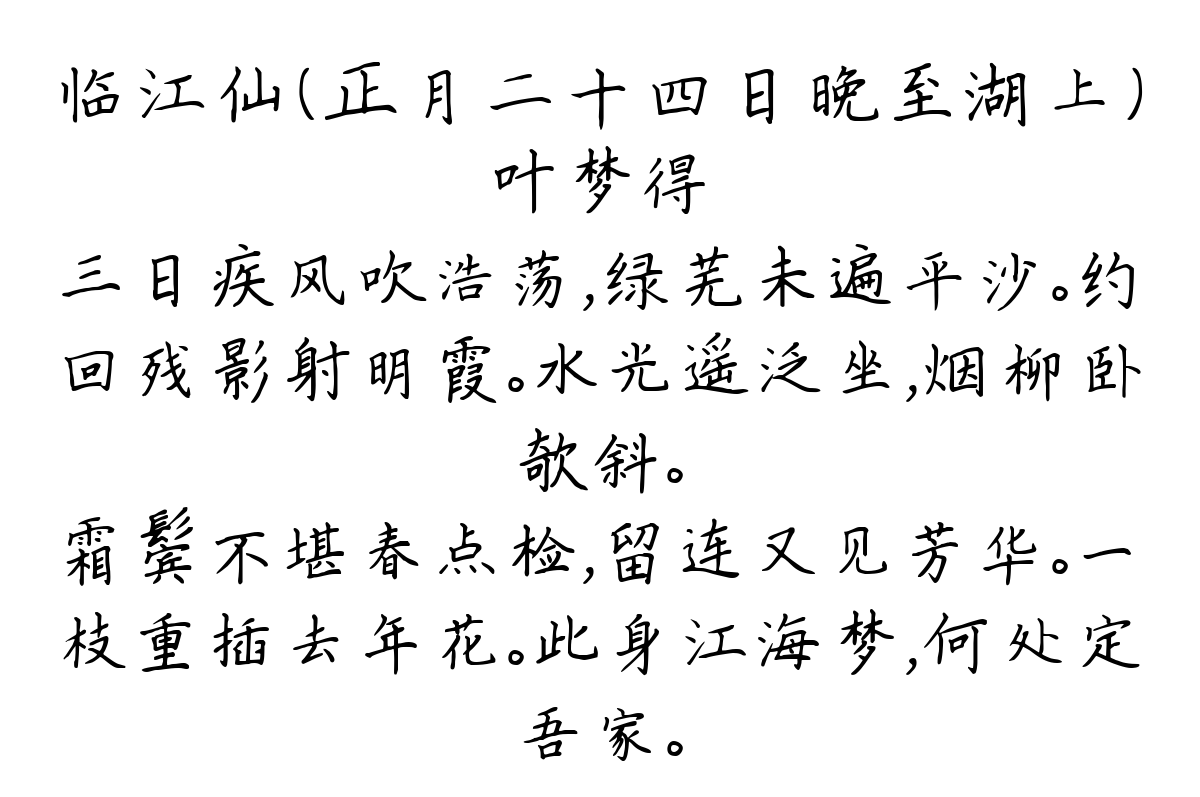 临江仙(正月二十四日晚至湖上)
叶梦得
三日疾风吹浩荡,绿芜未遍平沙。约
回残影射明霞。水光遥泛坐,烟柳卧
欹斜。
霜鬓不堪春点检,留连又见芳华。一
枝重插去年花。此身江海梦,何处定
吾家。